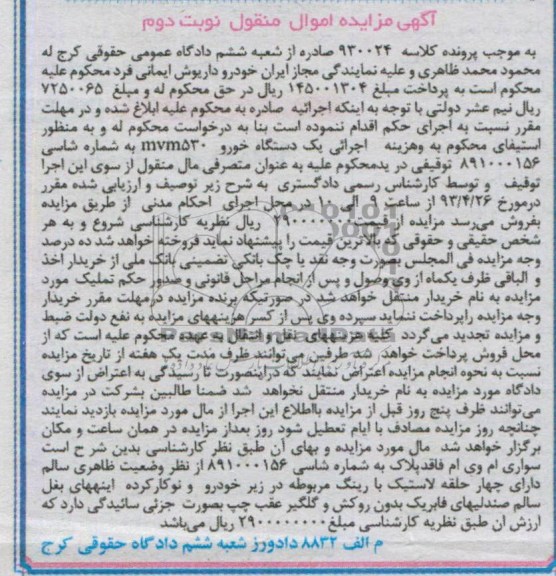 آگهی مزایده اموال منقول نوبت دوم
به موجب پرونده کلاسه ۹۳۰۰۲۴ صادره از شعبه ششم دادگاه عمومی حقوقی کرج له
محمود محمد ظاهری و علیه نمایندگی مجاز ایران خودرو داریوش ایمانی فرد محکوم علیه
محکوم است به پرداخت مبلغ ۱۴۵۰۰۱۳۰۴ ریال در حق محکوم له و مبلغ ۷۲۵۰۰۶۵
ریال نیم عشر دولتی با توجه به اینکه اجرائیه صادره به محکوم علیه ابلاغ شده و در مهلت
مقرر نسبت به اجرای حکم اقدام ننموده است بنا به درخواست محکوم له و به منظور
استیفای محکوم به وهزینه اجرائی یک دستگاه خورو mvm۵۳۰ به شماره شاسی
۸۹۱۰۰۰۱۵۶ توقیفی در یدمحکوم علیه به عنوان متصرفی مال منقول از سوی این اجرا
توقیف و توسط کارشناس رسمی دادگستری به شرح زیر توصیف و ارزیابی شده مقرر
درمورخ ۹۳/۴/۲۶ از ساعت ۹ الی ۱۰ در محل اجرای احکام مدنی از طریق مزایده
بفروش می‌رسد مزایده از قیمت ریال نظریه کارشناسی شروع و به هر
شخص حقیقی و حقوقی که بالاترین قیمت را پیشنهاد نماید فروخته خواهد شد ده درصد
وجه مزایده فی المجلس بصورت وجه نقد یا چک بانکی تضمینی بانک ملی از خریدار اخذ
و الباقی ظرف یکماه از وی وصول و پس از انجام مراحل قانونی و صدور حکم تملیک مورد
مزایده به نام خریدار منتقل خواهد شد در صورتیکه برنده مزایده درمهلت مقرر خریدار
وجه مزایده راپرداخت ننماید سپرده وی پس از کسر هزینههای مزایده به نفع دولت ضبط
و مزایده تجدید می‌گردد کلیه هزینه های نقل و انتقال به عهده محکوم علیه است که از
محل فروش پرداخت خواهد شد طرفین می‌توانند ظرف مدت یک هفته از تاریخ مزایده
نسبت به نحوه انجام مزایده اعتراض نمایند که دراینصورت تا رسیدگی به اعتراض از سوی
دادگاه مورد مزایده به نام خریدار منتقل نخواهد شد ضمنا طالبین بشرکت در مزایده
می‌توانند ظرف پنج روز قبل از مزایده بااطلاع این اجرا از مال مورد مزایده بازدید نمایند
چنانچه روز مزایده مصادف با ایام تعطیل شود روز بعداز مزایده در همان ساعت و مکان
برگزار خواهد شد مال مورد مزایده و بهای آن طبق نظر کارشناسی بدین شر ح است
سواری ام وی ام فاقدپلاک به شماره شاسی ۸۹۱۰۰۰۱۵۶ از نظر وضعیت ظاهری سالم
دارای چهار حلقه لاستیک با رینگ مربوطه در زیر خودرو و نوکارکرده اینههای بغل
سالم صندلیهای فابریک بدون روکش و گلگیر عقب چپ بصورت جزئی سائیدگی دارد که
ارزش ان طبق نظریه کارشناسی مبلغ ریال می‌باشد
م الف ۸۸۳۲ دادورز شعبه ششم دادگاه حقوقی کرج